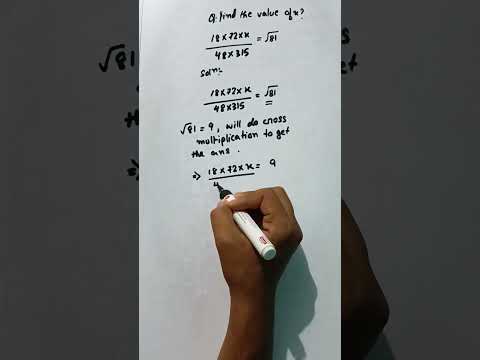 Q. find the value of x?
18×72×x = √81
48×315
Soln:
18×72×x = √81
48×315
√81 = 9, will do cross
multiplication to get
the ans.
⇒ 18×72×x = 9
4